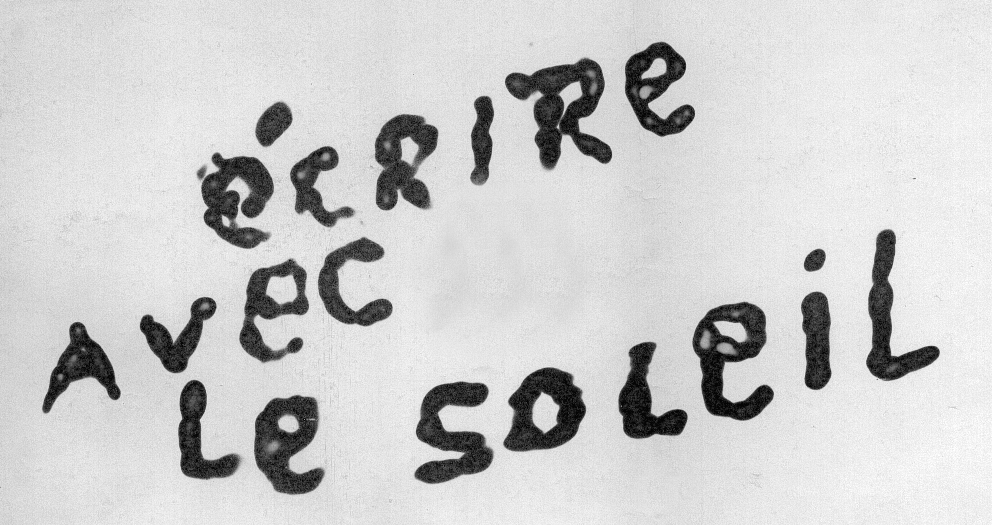 éCRIRe
AVeC
Le SOLeiL